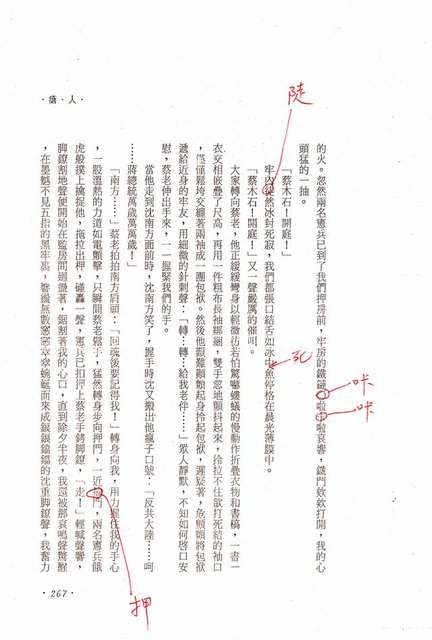 ·人·瘡·
的火。忽然兩名憲兵已到了我們押房前，牢房的鐵鏈啦啦哀響，鐵門欸欸打開，我的心
頭猛的一抽。
「蔡木石！開庭！」
牢內徒然冰封死寂，我們都張口結舌如冰中魚停格在晨光薄膜中。
「蔡木石！開庭！」又一聲嚴厲的催叫。
大家轉向蔡老，他正緩緩彎身以輕微彷若怕驚嚇螻蟻的慢動作折疊衣物和書稿，一書一
衣交相嵌疊了尺高，再用一件粗布長袖綁綑，雙手忽地顫抖起來，拎拉不住欲打死結的袖口
，僅僅鬆垮交纏著兩袖成一團包袱。然後他艱難顫顫起身拎起包袱，遲疑著，危顫顫將包袱
遞給近身的牢友，用細微的針刺聲：「轉……轉……給我老伴……」眾人靜默，不知如何啓口安
慰，蔡老伸出手來，一一握緊我們的手。
當他走到沈南方面前時，沈南方笑了，握手時沈又搬出他瘋子口號：「反共大陸……呵
……蔣總統萬歲萬萬歲！」
「南方……」蔡老拍拍南方肩頭：「回魂後要記得我！」轉身向我，用力握住我的手心
，一股溫熱的力道如電顫擊，只瞬間蔡老鬆手，猛然轉身步向押門，一近柙門，兩名憲兵餓
虎般撲上擒捉他，拖拉出柙，碰轟一聲，憲兵已扣押上蔡老手銬脚鐐，「走！」輕喊聲響，
脚鐐割地聲便開始在監房間迴盪著，鋸割著我的心口，直到除夕半夜，我還被那哀鳴聲驚醒
，在墨魆不見五指的黑牢裏，響盪無數窸窸窣窣蜿蜒而來成鎯鎯鐺鐺的沈重脚鐐聲，我奮力
·267·
陡
死
咔
咔
押